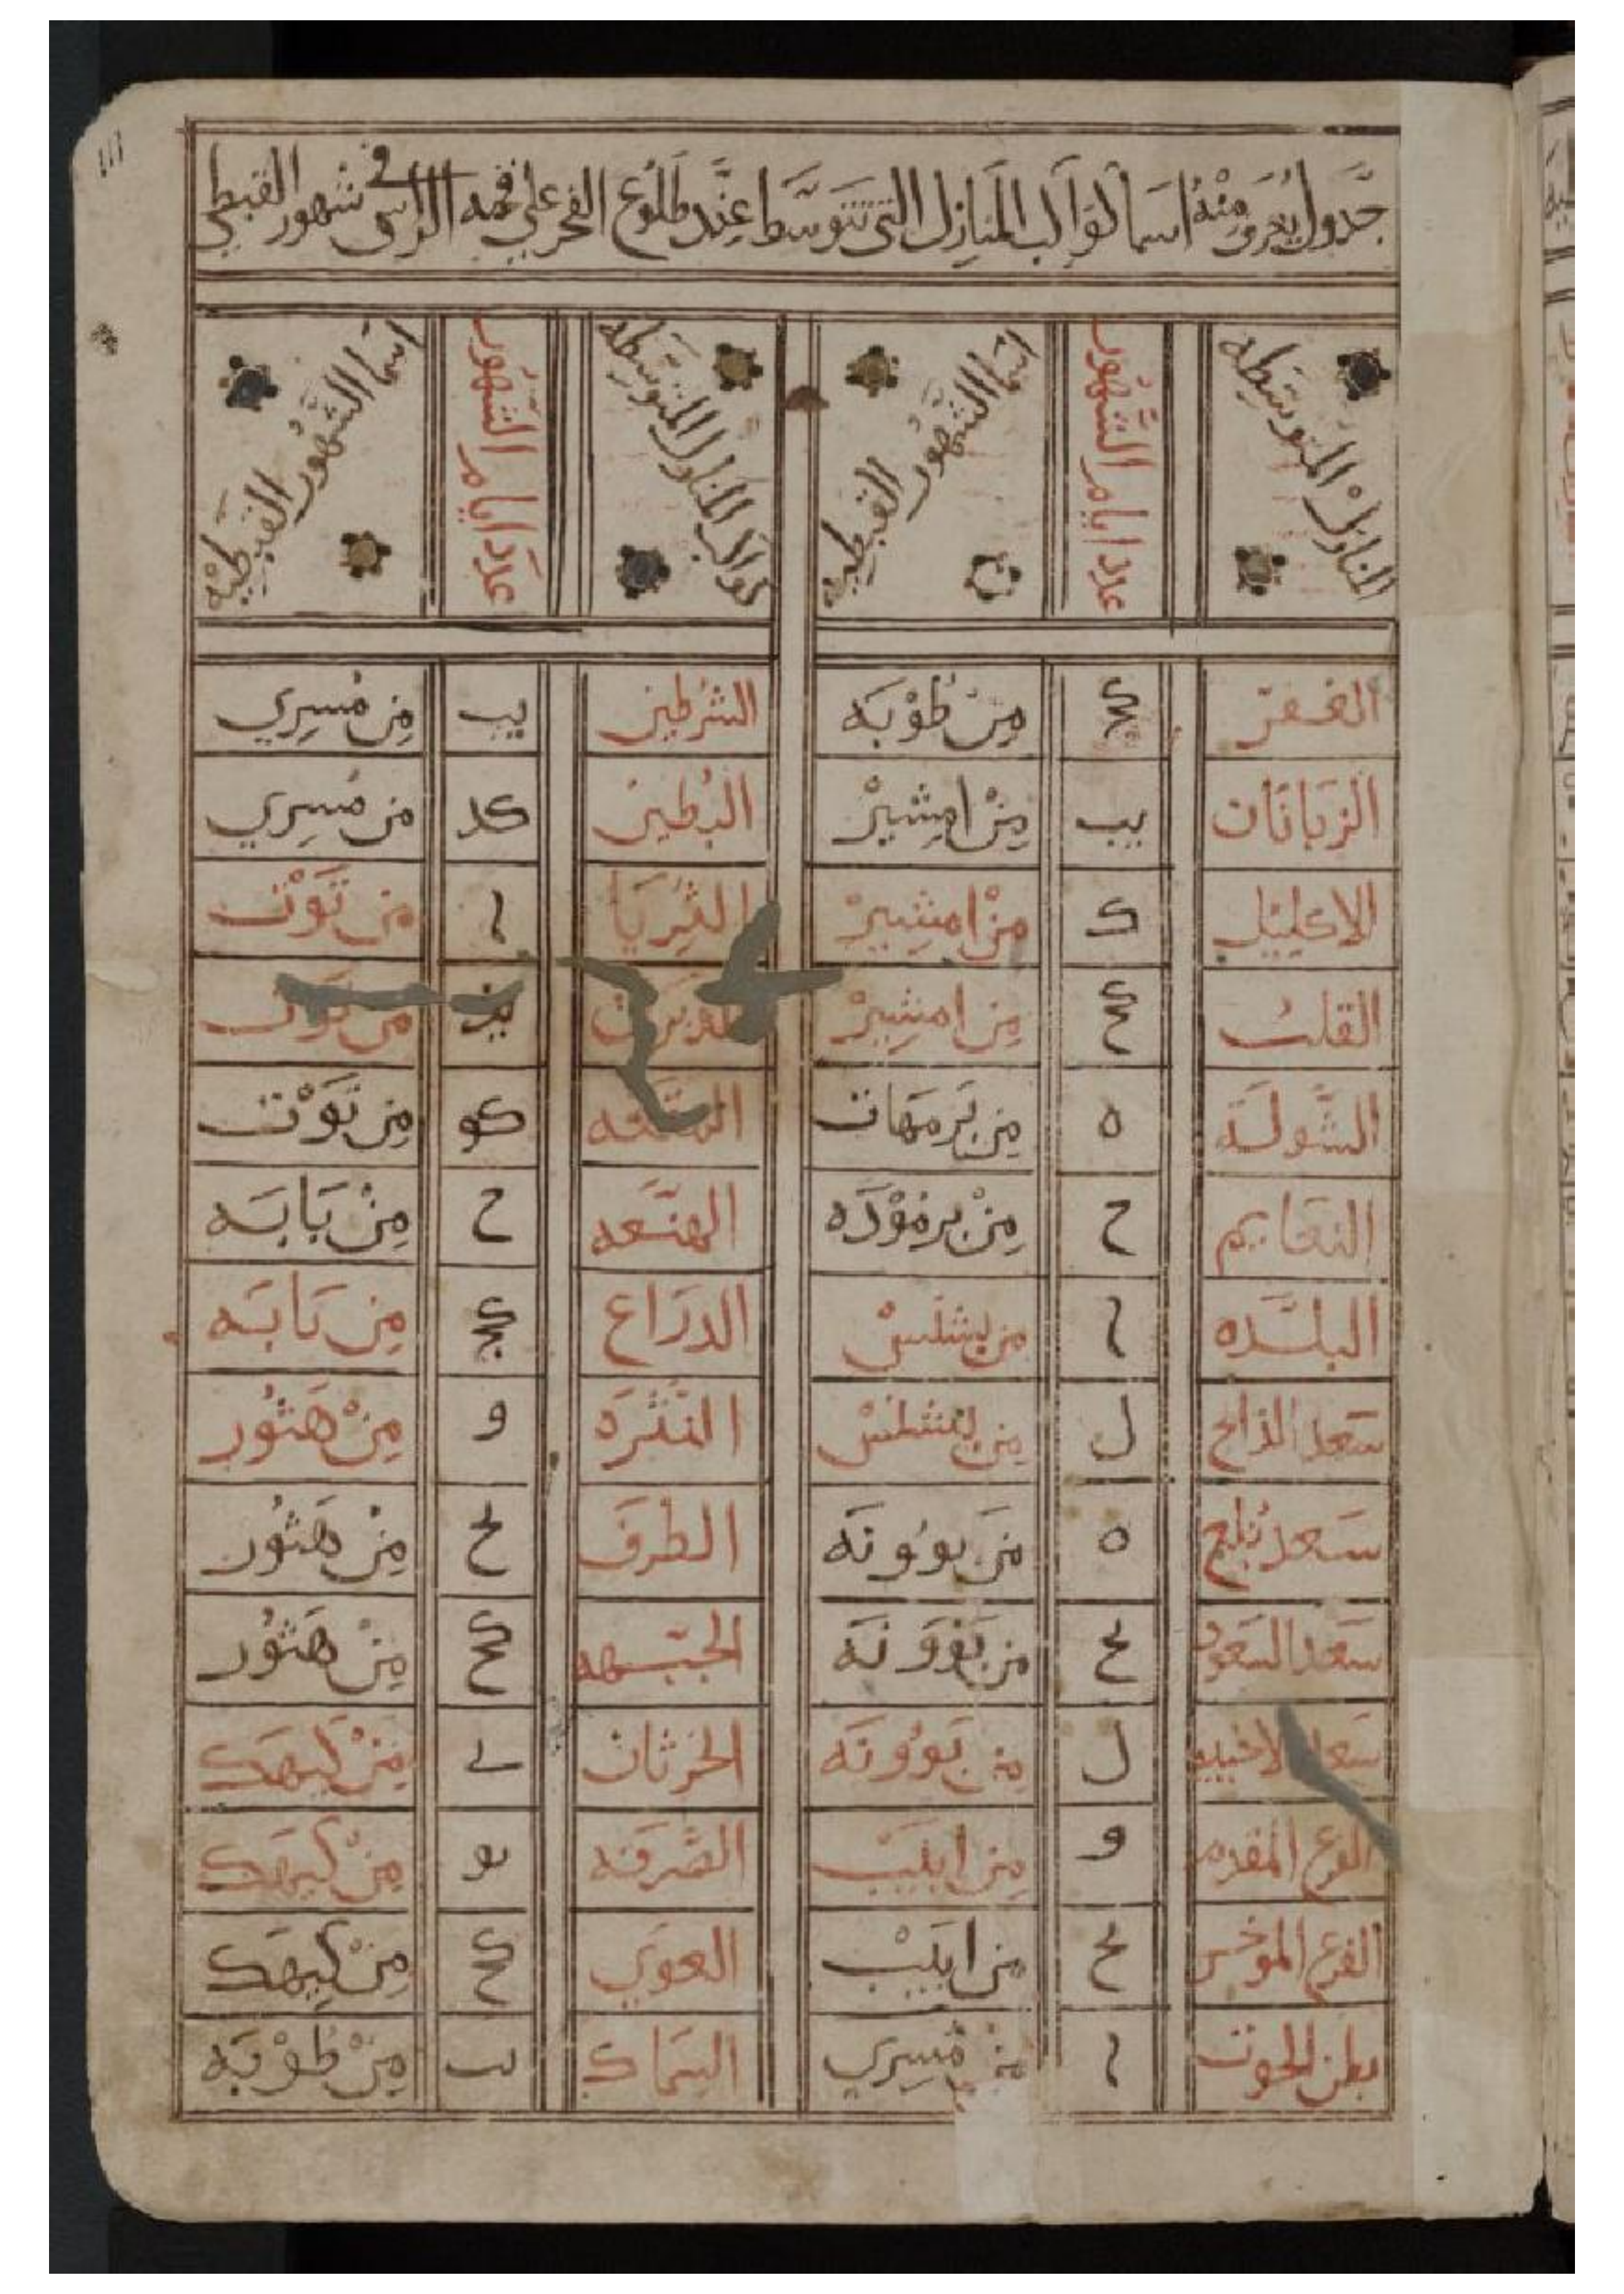 جدول يعرف منه اسما كواكب المنازل التى تتوسط عند طلوع الفجر على قمه الراس فى شهور القبطى
المنازل المتوسطه عدد ايام الشهور اسما الشهور القبطيه كواكب المنازل المتوسطه عدد ايام الشهور اسما الشهور القبطيه
الغفر من طوبه الشرطين يب من مسري
الزبانان يب من امشير البطين كد من مسري
الاكليل ك من امشير الثريا ا من توت
القلب كح من امشير من توت
الشوله ه من برمهات الهقعه كو من توت
النعايم ح من برموده الهنعه ح من بابه
البلده ا من بشنس الدراع من بابه
سعد الذابح ل من بشنس النثره و من هتور
سعد بلع ه من بوونه الطرف يح من هتور
سعد السعود يح من بوونه الجبهه كح من هتور
سعد الاخبيه ل من بوونه الخرثان من كيهك
الفرع المقدم و من ابيب الصرفه يو من كيهك
الفرع الموخر يح من ابيب العوي كح من كيهك
بطن الحوت ا من مسري السماك من طوبه